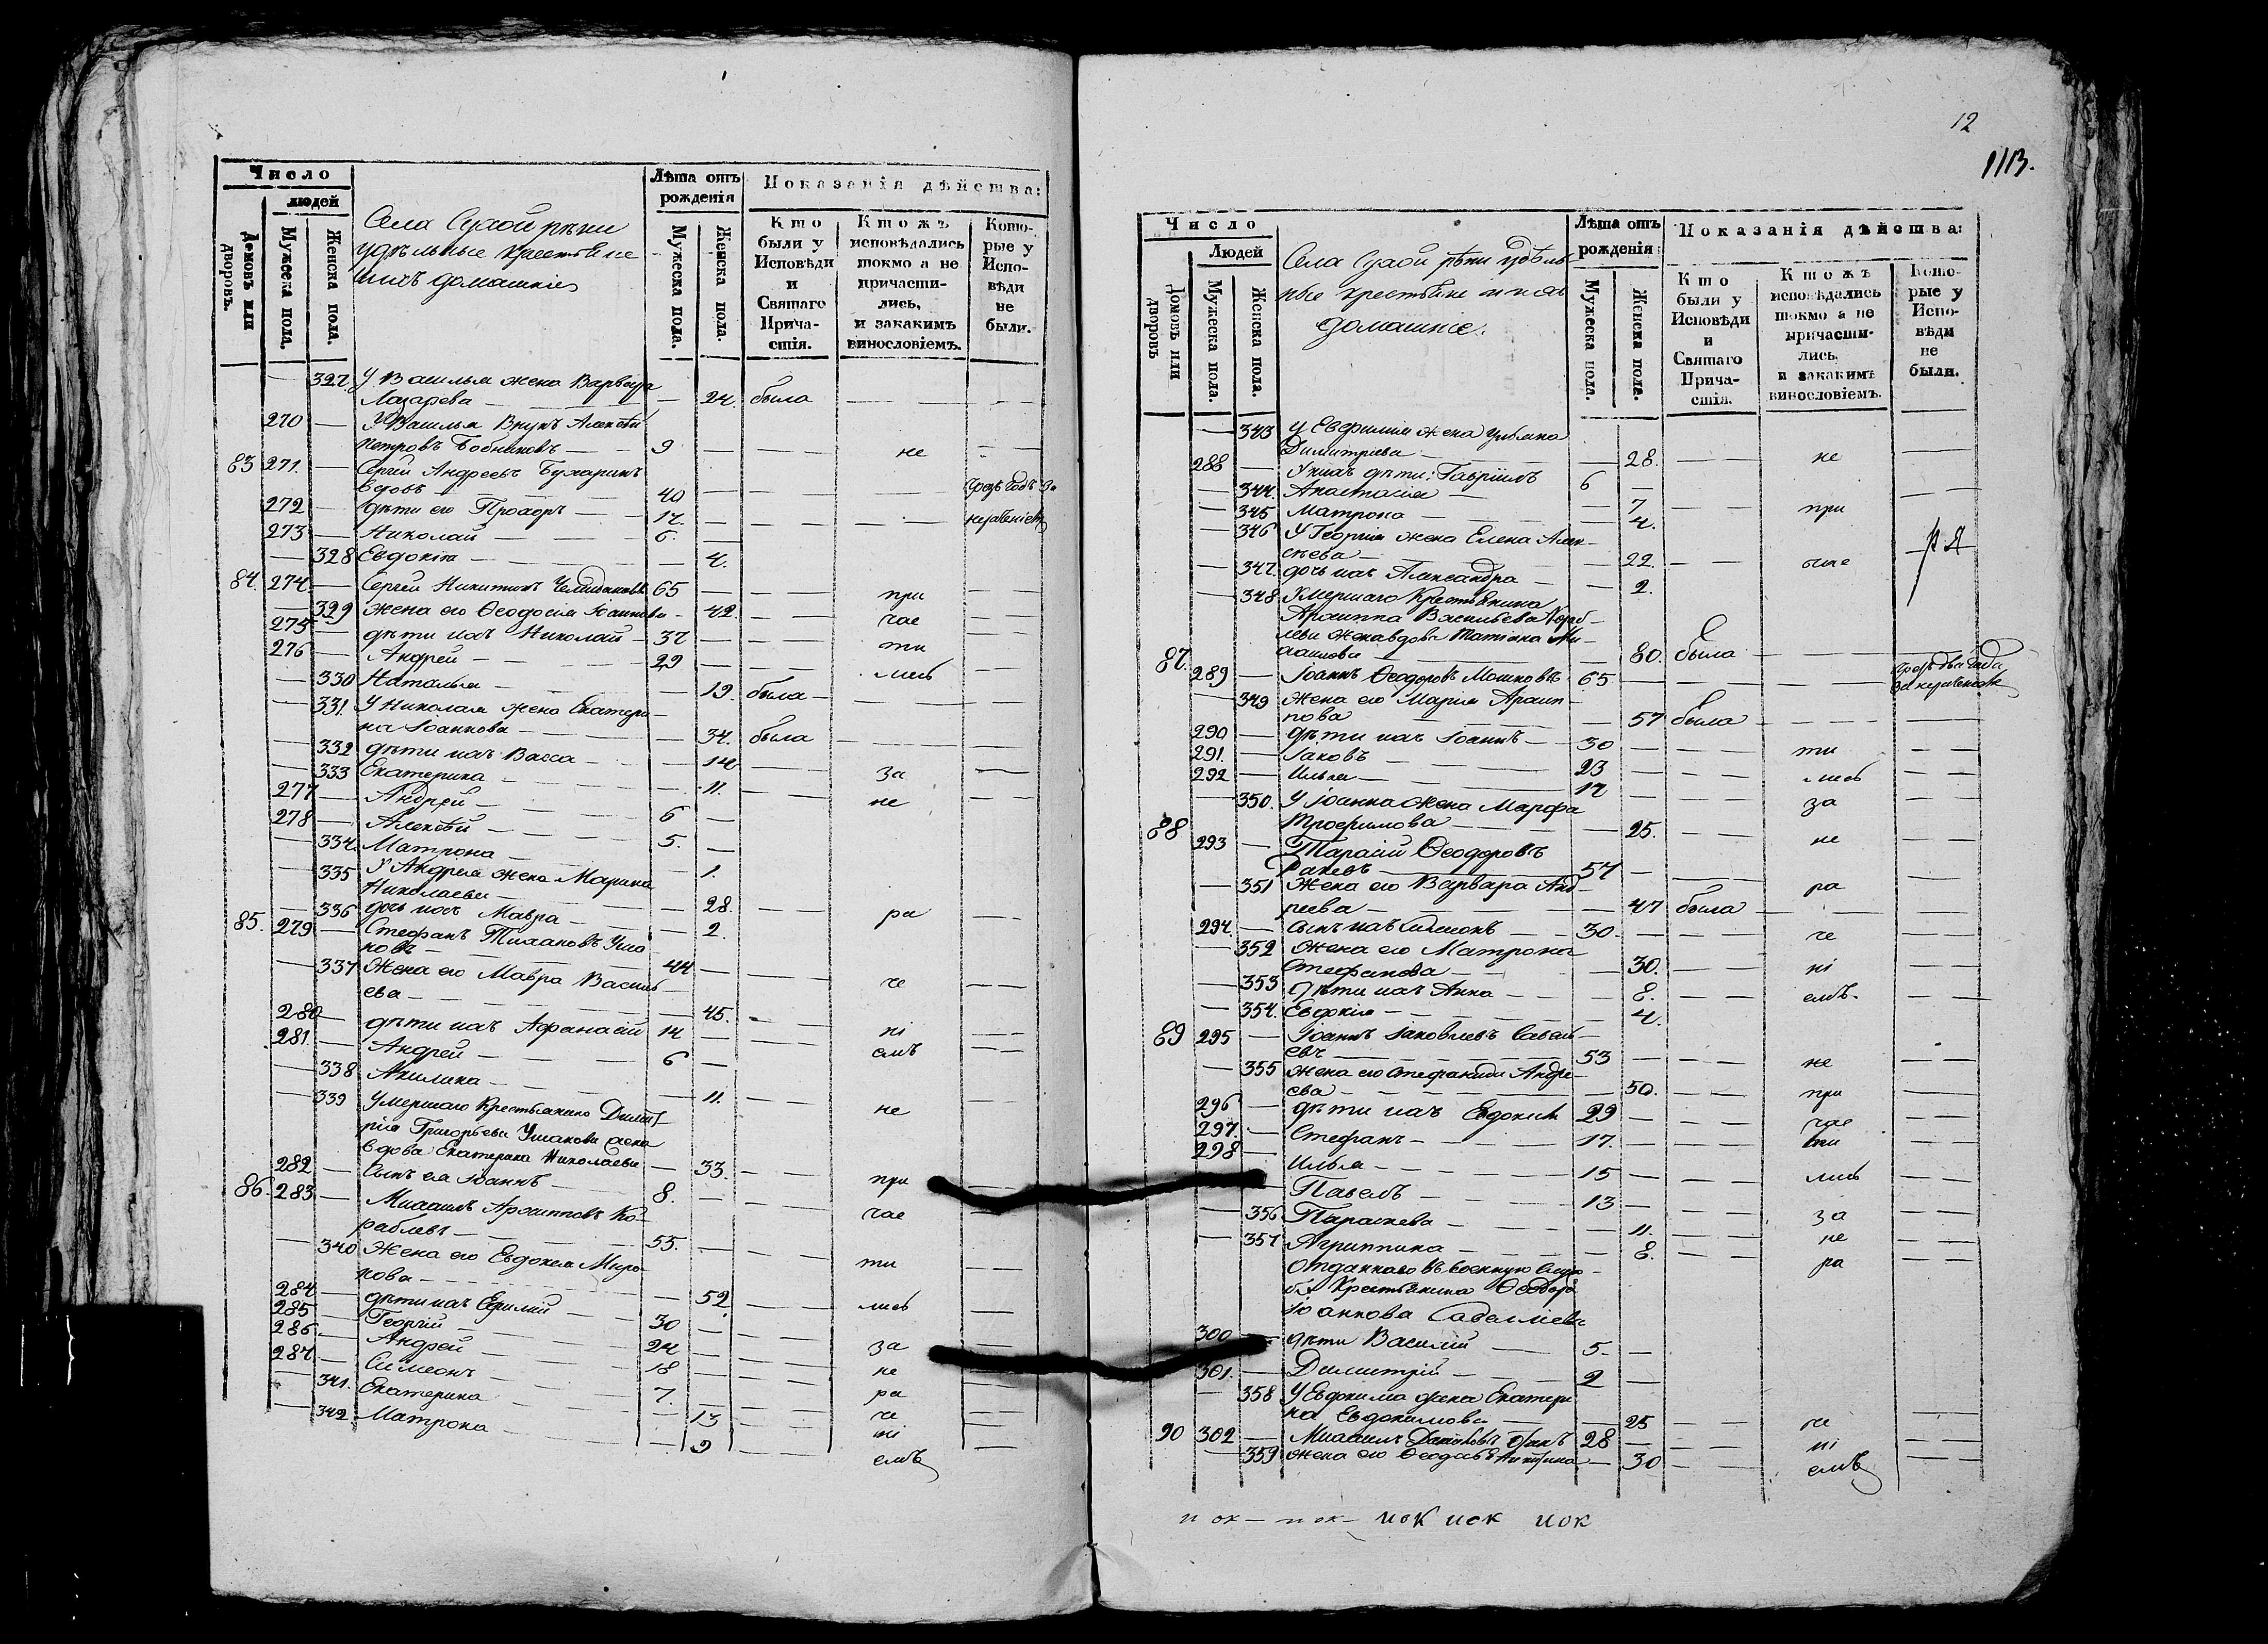 12
113.
Число
людей
Домовъ или дворовъ.
Мужеска пола.
Женска пола.
Села Сухой рѣки
удѣльные крестьяне
ихъ домашніе
Лѣта отъ рожденія
Мужеска пола.
Женска пола.
Показанія дѣйства:
Кто были у Исповѣди и Святаго Причастія.
Ктожъ исповѣдались токмо а не причастились, и закакимъ винословіемъ.
Которые у Исповѣди не были.
327. У Василья жена Варвара
Лазарева — 24. была
270 У Василья Внукъ Алексѣй
Петровъ Бобниковъ — 9 не
83 271. Сергей Андреевъ Бухаринъ
вдовъ — 40
272 дѣти его Прохоръ — 17.
273 Николай — 6
328 Евдокія — 4.
84. 274 Сергей Никитинъ 65 при
329 жена его Ѳеодосія Іоаннова 42. чае
275 дѣти ихъ Николай 37 ти
276 Андрей — 29 лись
330 Наталья — 19. была
331. У Николая жена Екатери-
на Іоаннова — 34. была
332 дѣти ихъ Васса — 14
333 Екатерина — 11. за
277 Андрей — 6 не
278 Алексѣй — 5.
334. Матрона — 1.
335 У Андрея жена Марина
Николаева — 28. ра
336 дочь ихъ Мавра — 2.
85. 279 Стефанъ Тихановъ Уша
ковъ — 44
337 Жена его Мавра Василь
ева — 45. че
280 дѣти ихъ Афанасій 14 ні
281. Андрей — 6 емъ
338 Акилина — 11.
339 Умершаго Крестьянина Димит
рія Григорьева Ушакова жена
вдова Екатерина Николаева — 33. не
282 Сынъ ея Іоаннъ 8. при
86. 283 Михаилъ Архипповъ Ко-
раблевъ — 55. чае
340 Жена его Евдокея Миро
нова — 52 ти
284 дѣти ихъ Ефимій 30 лись
285 Георгій — 24 за
286 Андрей — 18 не
287. Симеонъ 7. ра
341. Екатерина — 13 че
342. Матрона — 9 ні
емъ
Число
Людей
Домовъ или дворовъ
Мужеска пола.
Женска пола.
Села Сухой рѣки удѣль
ные крестьяне и ихъ
домашніе.
Лѣта отъ рожденія
Мужеска пола.
Женска пола.
Показанія дѣйства:
Кто были у Исповѣди и Святаго Причастія.
Ктожъ исповѣдались токмо а не причастились, и закакимъ винословіемъ.
Которые у Исповѣди не были.
343 У Евфимія жена Ульяна
Димитріева — 28. не
288 У нихъ дѣти: Гавріилъ 6
344. Анастасія — 7
345 Матрона — 4. при
346 У Георгія жена Елена Алек-
сѣева — 22. чае
347. дочь ихъ Александра — 2.
348 Умершаго Крестьянина
Архиппа Васильева Кораб-
лева жена вдова Татіана Ми-
хаилова — 80. была
87. 289 Іоаннъ Ѳеодоровъ Мошковъ 65
349 жена его Марія Архип-
пова — 57 была
290 дѣти ихъ Іоаннъ — 30 ти
291. Іаковъ 23 лись
292 Илья — 17 за
350. У Іоанна жена Марфа
Трофимова — 25. не
88 293 Тарасій Ѳеодоровъ
— 57 ра
351 Жена его Варвара Анд-
реева — 47 была
294. сынъ ихъ Симеонъ 30. че
352 Жена его Матрона
Стефанова — 30. ні
353 дѣти ихъ Анна — 8. емъ.
354. Евдокія — 4.
89 295 Іоаннъ Іаковлевъ Савель
евъ — 53 не
355 жена его Стефанида Андре-
ева — 50. при
296 дѣти ихъ Евдоким 29 чае
297. Стефанъ — 17. ти
298 Илья — 15 лись
Павелъ — 13 за
356 Параскева — 11. не
357 Агриппина — 8. ра
Отданнаго въ военную служ
бу Крестьянина Ѳеодора
Іоаннова Савельева
300 дѣти Василій 5.
301. Димитрій — 2
358 У Евдокима жена Екатери
на Евдокимова — 25 че
90 302 Михаилъ 28 ні
359 жена его Ѳеодосья Никитина 30 емъ